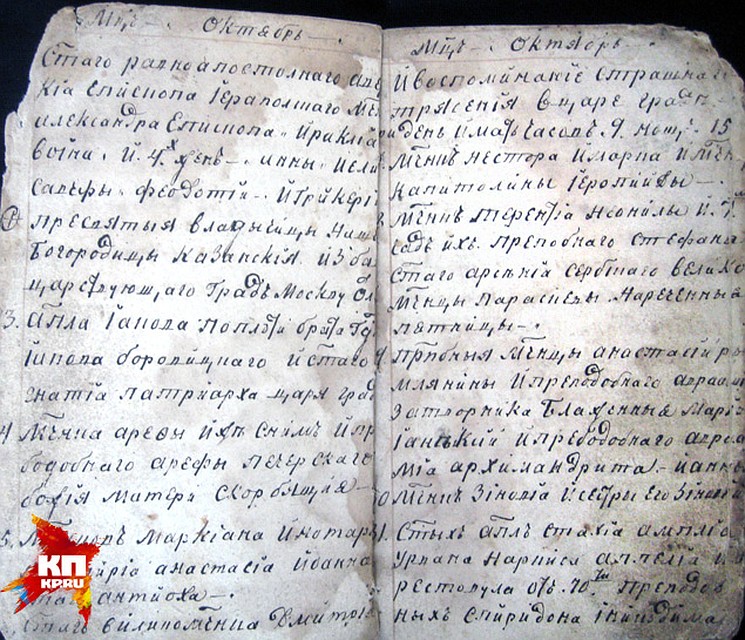 Мцъ — Октябрь —.
Стаго равноапостолнаго аве
кія Епископа Іераполшаго Мчн
александра Епископа. Ираклія
воина. й. 4х женъ —. анны й ели
саветы. феодотіи —. й Гликеріи
пресвятыя владычицы наш
Богородицы Казанскія. йзба
царствующаго градъ Москву
3. апла Іакова поплоти брата Гд
Іакова боровицкаго й стаго
гнатія патриарха — царя град
4 Мчнка арефы йжъ снимъ й пр
бодобнаго арефы печерскаго
божія матери скорбящія —
5. Маркіана й нотар
анастасія Іоанна
антиоха —.
стаго великомчнка Дмитрія
Мцъ — Октябрь —.
й воспоминаніе страшнаг
трясенія вцаре градѣ —
день йматъ часовъ. 9. нощь. 15
Мчникъ нестора й марка й Мчн
капитолины Іеропийды —.
Мчникъ терентія неонилы й.
чадъ йхъ. преподбнаго стефана
стаго арсенія сербшаго велико
Мчнцы параскевы нареченныя
пятницы —.
Прпбныя Мчнцы анастасіи ры
млянины й преподобнаго авраам
затворника блаженныя Маріи
й пребодобнаго авраа
мія архимандрита. — й анны
0 Мчникъ зіновія й сестры его зіновіи
1. Стыхъ аплъ стахіа ампліа
урвана наркиса аппелія й
рестовула отъ. 70.ти преподоб
ныхъ спиридона й никодима
КП
KP.RU